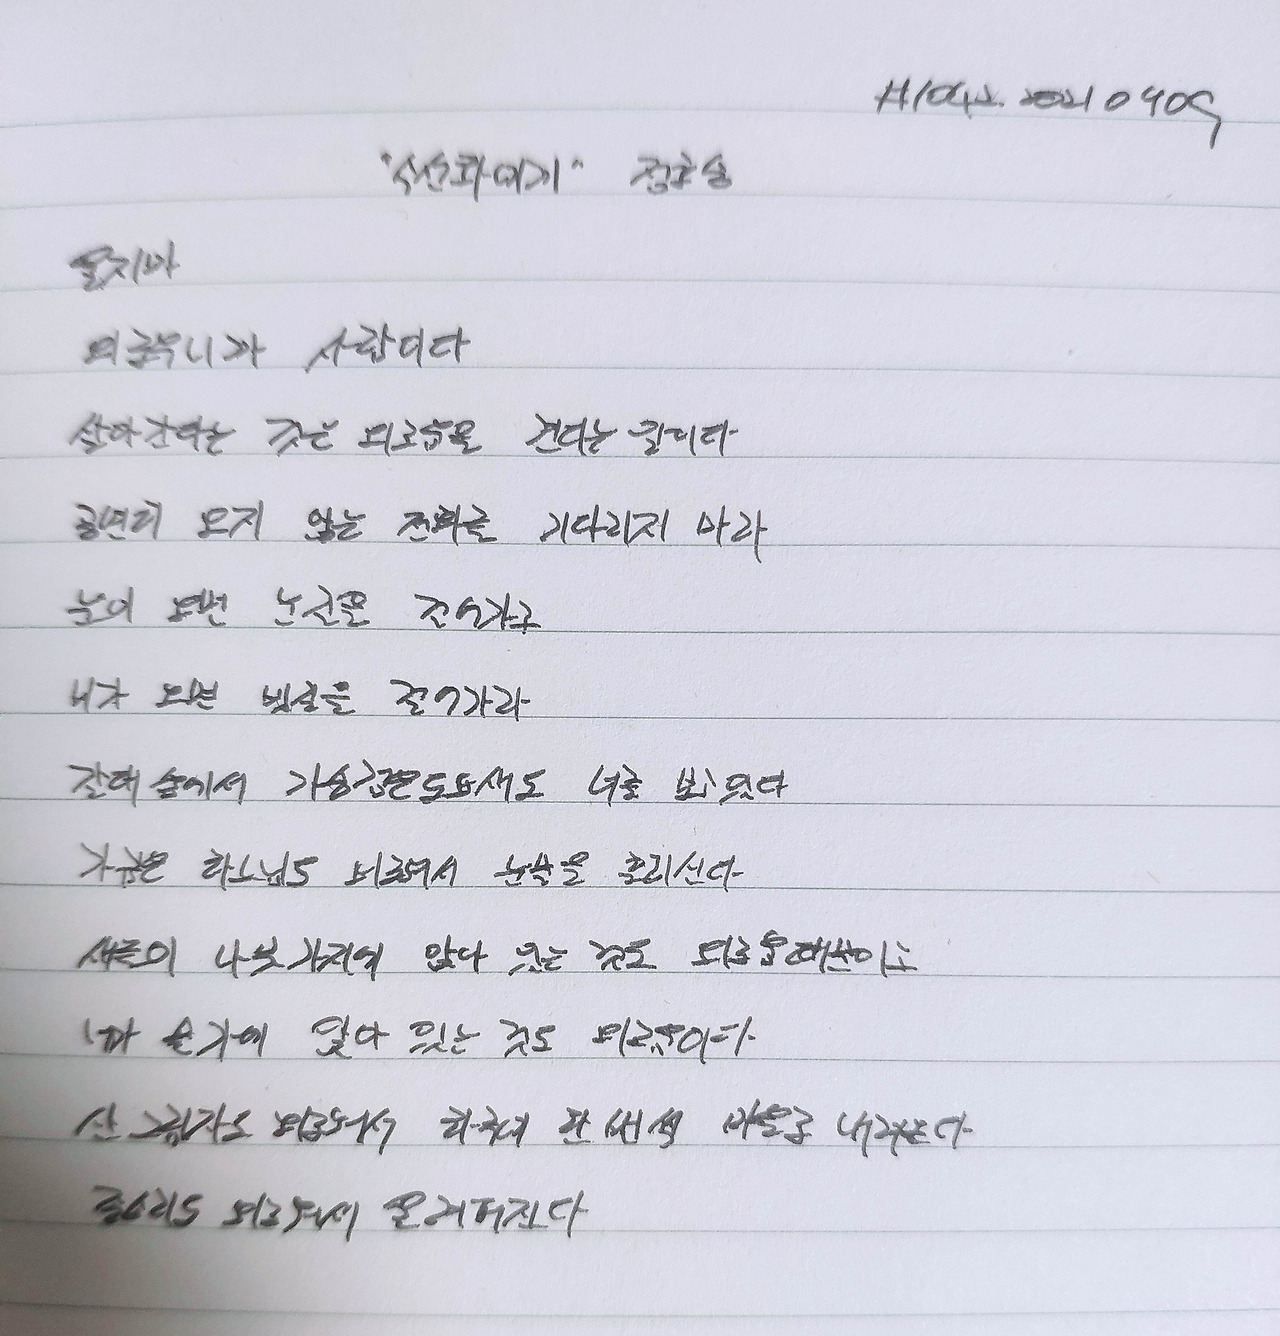 20210409
"수선화에게" 정호승
울지마
외로우니까 사람이다
살아간다는 것은 외로움을 견디는 일이다
공연히 오지 않는 전화를 기다리지 마라
눈이 오면 눈길을 걸어가고
비가 오면 빗길을 걸어가라
갈대 숲에서 가슴검은도요새도 너를 보고 있다
가끔은 하느님도 외로워서 눈물을 흘리신다
새들이 나뭇가지에 앉아 있는 것도 외로움 때문이고
네가 물가에 앉아 있는 것도 외로움이다
산 그림자도 외로워서 하루에 한 번씩 마을로 내려온다
종소리도 외로워서 울려퍼진다